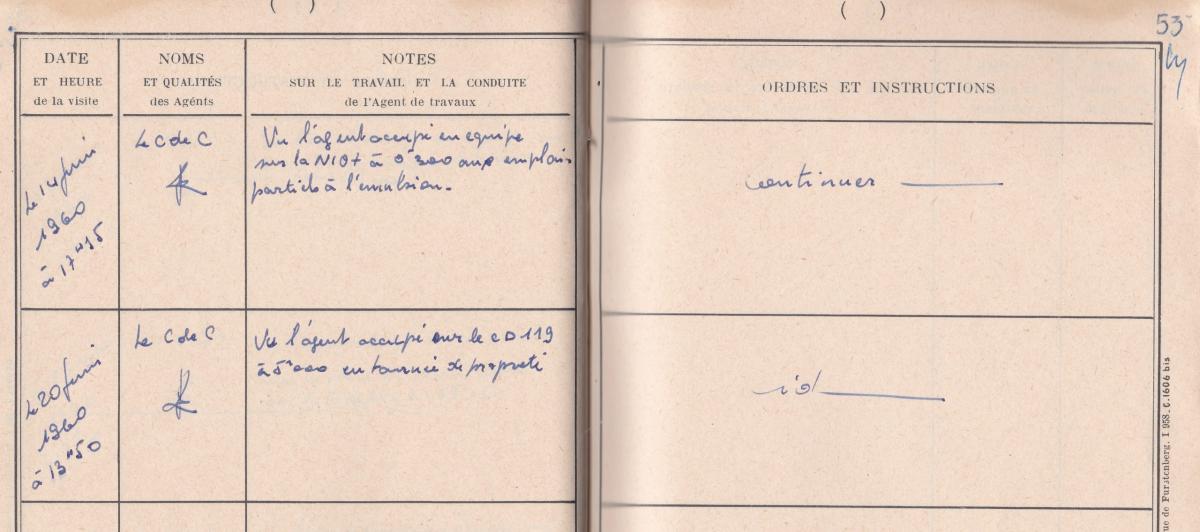 ( )
( )
53
DATE
ET HEURE
de la visite
NOMS
ET QUALITÉS
des Agents
NOTES
SUR LE TRAVAIL ET LA CONDUITE
de l'Agent de travaux
ORDRES ET INSTRUCTIONS
Le 14 juin
1960
à 17H15
Le C de C
Vu l'agent occupé en équipe
sur la N107 à 0K300 aux emplois
partiels à l'émulsion.
continuer
Le 20 juin
1960
à 13H50
Le C de C
Vu l'agent occupé sur le CD 119
à 5K000 en tournée de propreté
id
ue de Furstenberg. I 958. C.1606 bis